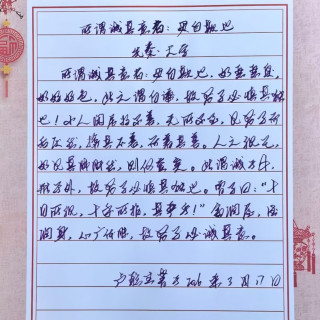 所谓诚其意者：毋自欺也
先秦·大学
所谓诚其意者：毋自欺也，如恶恶臭，
如好好色，此之谓自谦，故君子必慎其独
也！小人闲居为不善，无所不至，见君子而
后厌然，掩其不善，而著其善。人之视己，
如见其肺肝然，则何益矣。此谓诚于中，
形于外，故君子必慎其独也。曾子曰：“十
目所视，十手所指，其严乎！”富润屋，德
润身，心广体胖，故君子必诚其意。
3月17日